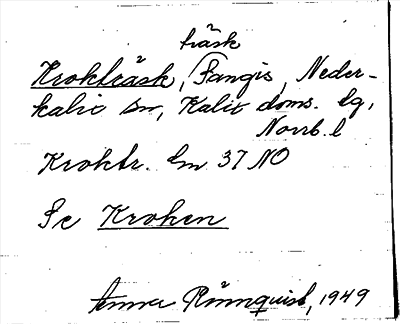 träsk
Krokträsk, (Sangis, Neder-
kalix sn, Kalix doms. lg,
Norrb. l
Kroktr. lm 37 NO
Se Kroken
Anna Rönnquist, 1949